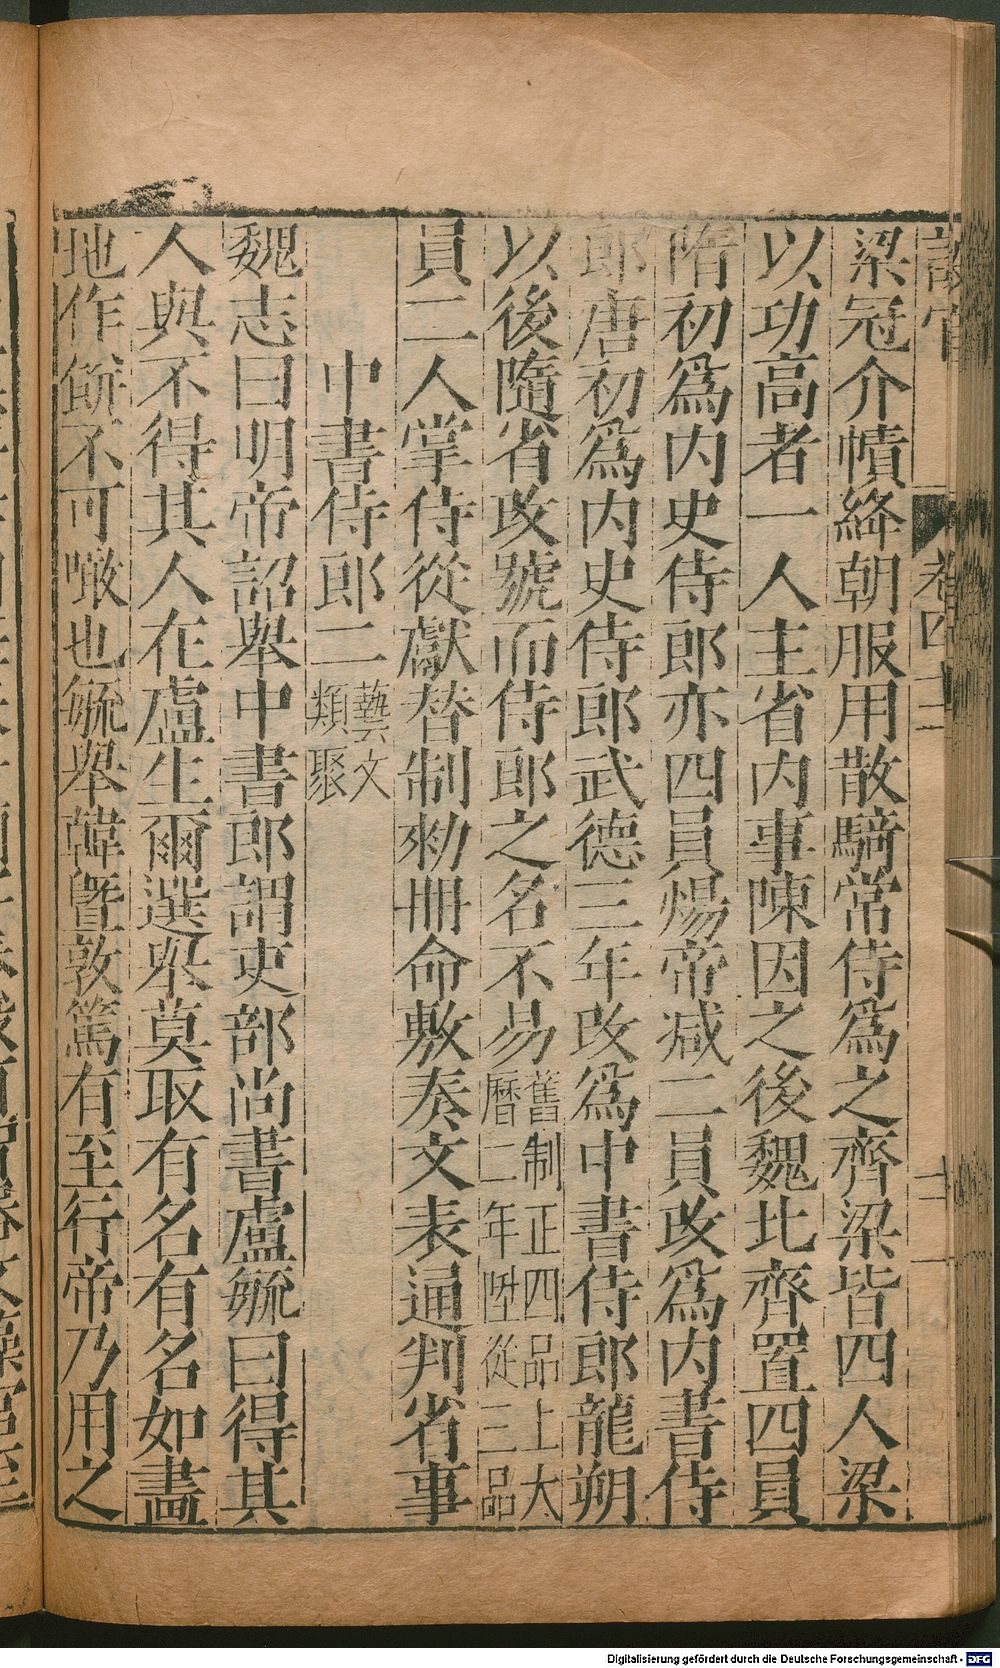 設官
卷四十二
梁冠介幘絳朝服用散騎常侍爲之齊梁皆四人梁
以功高者一人主省内事陳因之後魏北齊置四員
隋初爲内史侍郎亦四員煬帝减二員改爲内書侍
郎唐初爲内史侍郎武德三年改爲中書侍郎龍朔
以後隨省改號而侍郎之名不易舊制正四品上大
曆二年陞從三品
員二人掌侍從獻替制勑冊命敷奏文表通判省事
中書侍郎二藝文
類聚
魏志曰明帝詔舉中書郎謂吏部尚書盧毓曰得其
人與不得其人在盧生爾選舉莫取有名有名如畫
地作餅不可噉也毓舉韓曁敦篤有至行帝乃用之
Digitalisierung gefördert durch die Deutsche Forschungsgemeinschaft - DFG